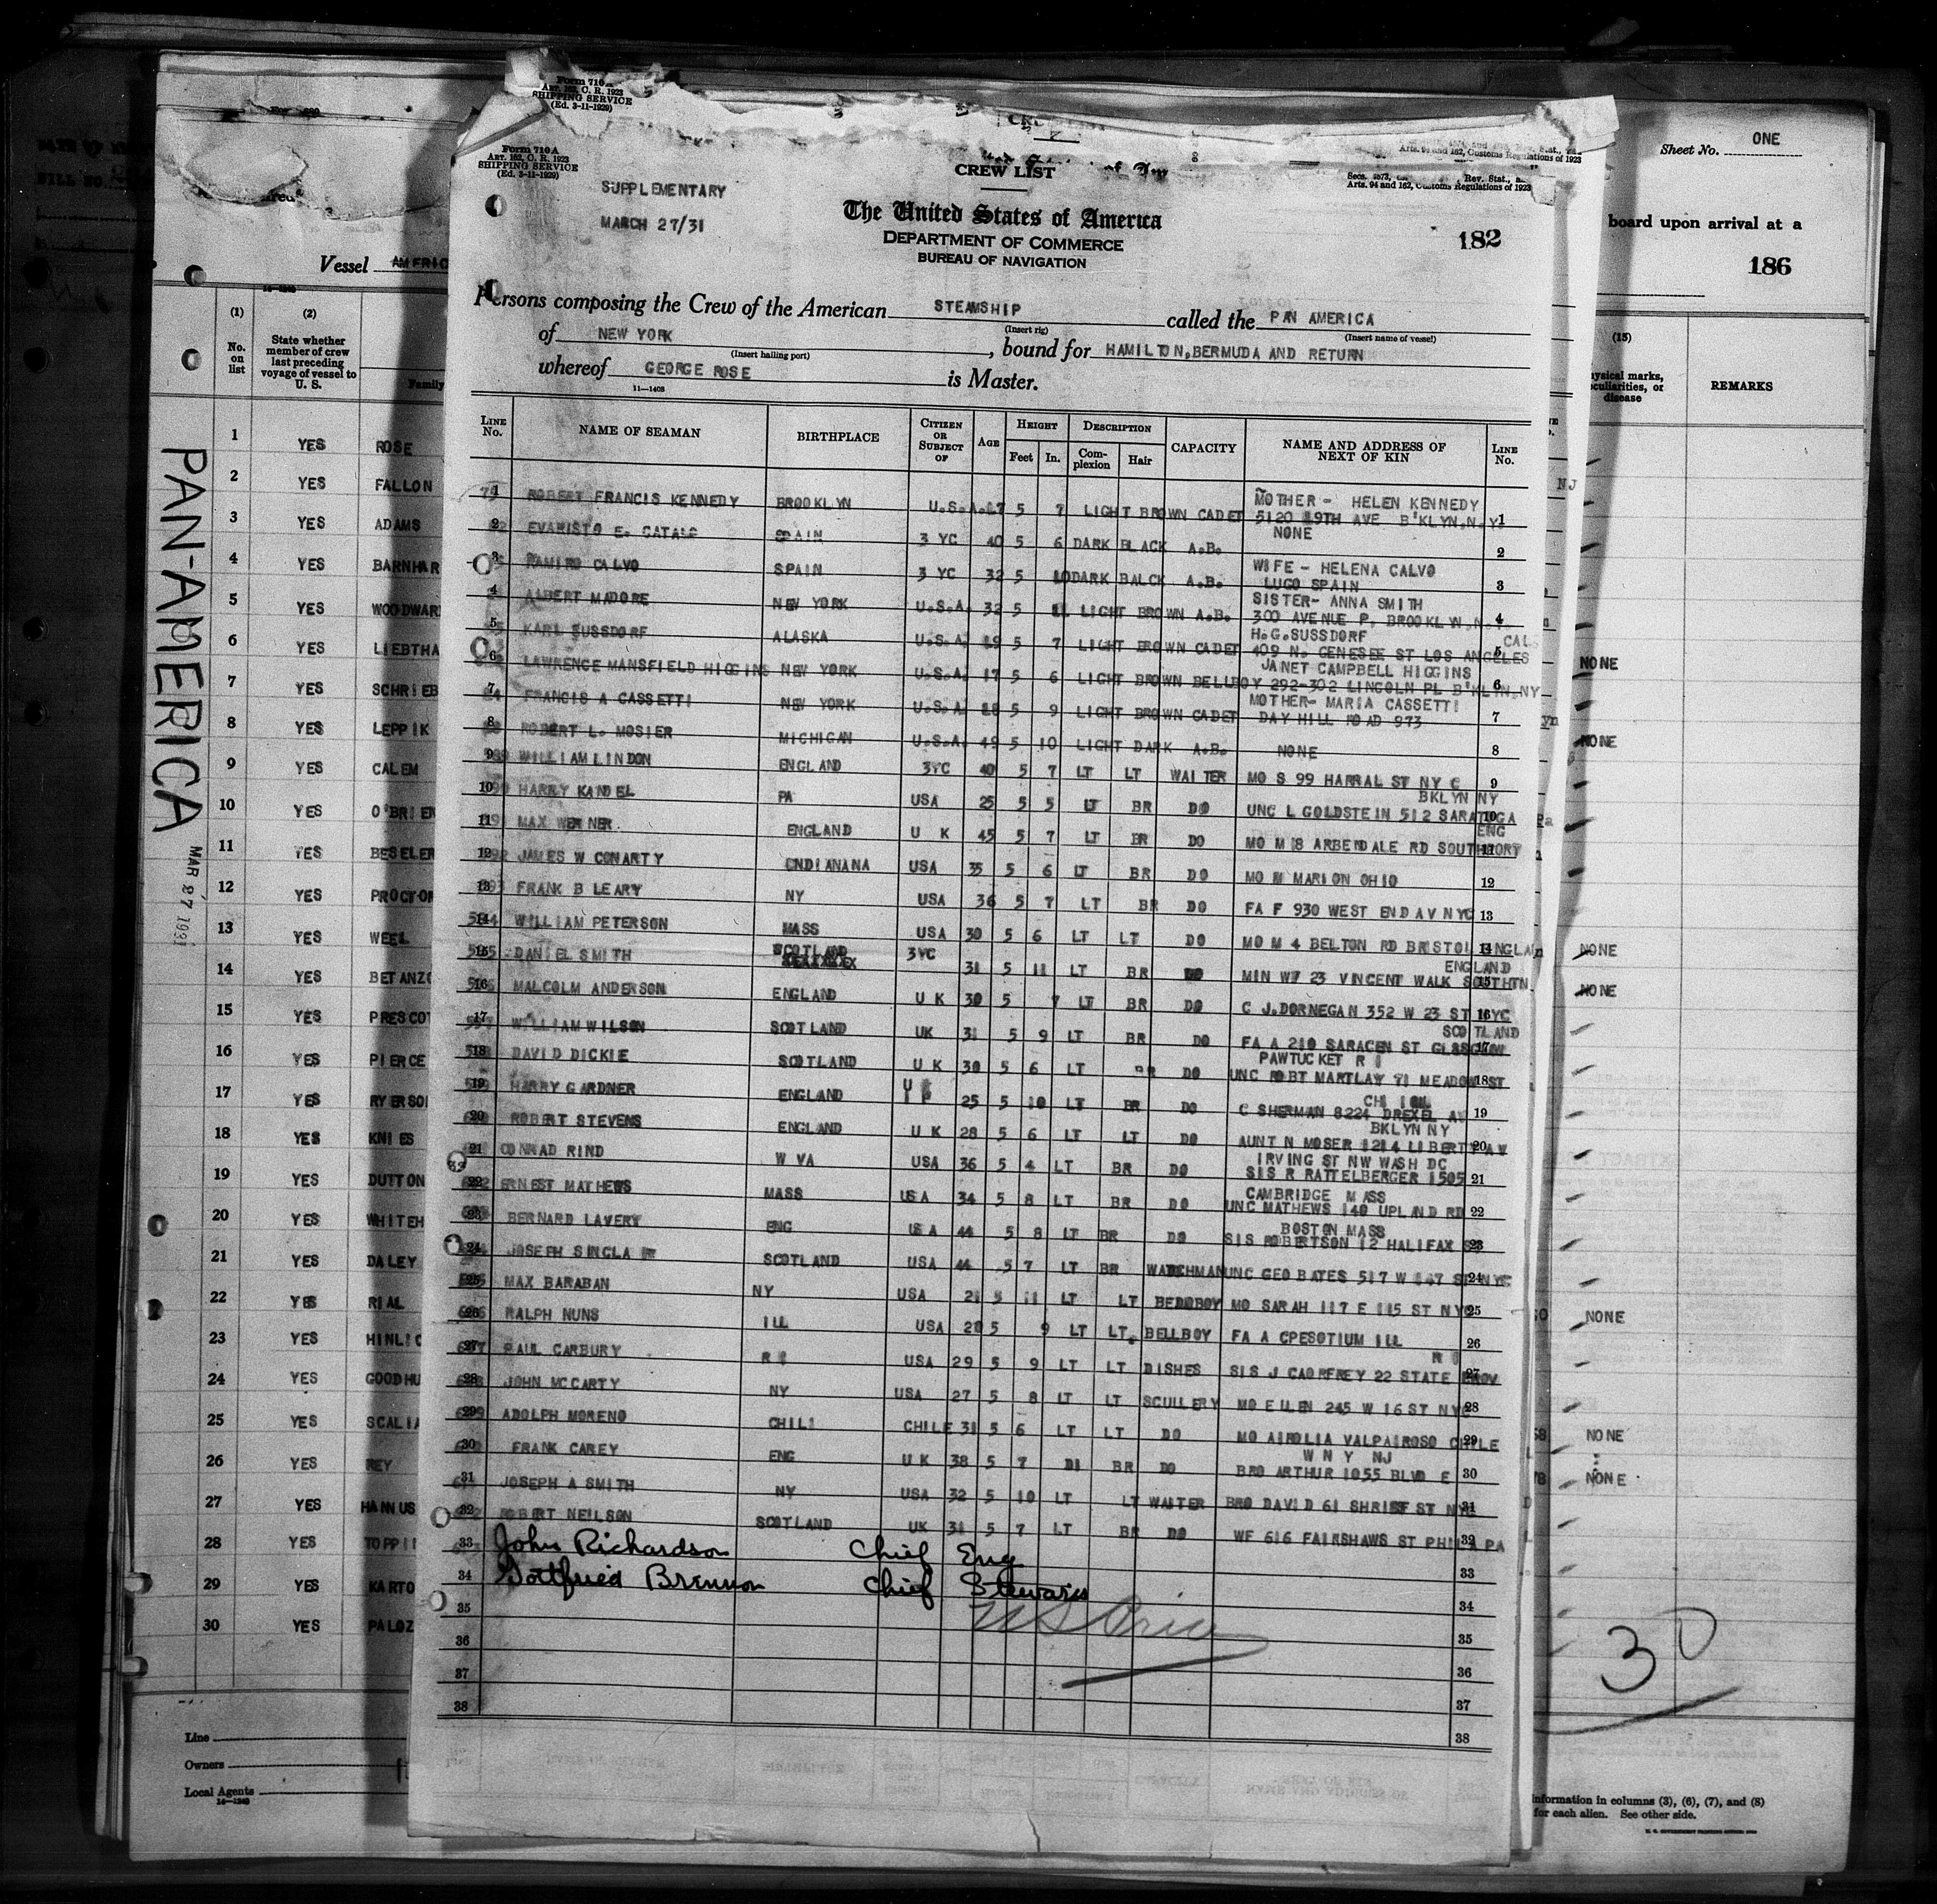 Form 710A
ART. 162, C. R. 1923
SHIPPING SERVICE
(Ed. 3-11-1929)
Form 710A
ART. 162, C. R. 1923
SHIPPING SERVICE
(Ed. 3-11-1929)
SUPPLEMENTARY
MARCH 27/31
CREW LIST
The United States of America
DEPARTMENT OF COMMERCE
BUREAU OF NAVIGATION
Rev. Stat.,
Arts. 94 and 162, Customs Regulations of 1923
182
Persons composing the Crew of the American STEAMSHIP called the PAN AMERICA
(Insert rig) (Insert name of vessel)
of NEW YORK, bound for HAMILTON, BERMUDA AND RETURN
(Insert hailing port)
whereof GEORGE ROSE is Master.
11—1408
LINE No. NAME OF SEAMAN BIRTHPLACE CITIZEN OR SUBJECT OF AGE HEIGHT Feet In. DESCRIPTION Complexion Hair CAPACITY NAME AND ADDRESS OF NEXT OF KIN LINE No.
1 ROBERT FRANCIS KENNEDY BROOKLYN U.S.A. 17 5 7 LIGHT BROWN CADET MOTHER - HELEN KENNEDY 5120 19TH AVE B'KLYN,N.Y. 1
2 EVARISTO E. CATALE SPAIN 3 YC 40 5 6 DARK BLACK A.B. NONE 2
3 RAMIRO CALVO SPAIN 3 YC 32 5 10 DARK BALCK A.B. WIFE - HELENA CALVO LUGO SPAIN 3
4 ALBERT MADORE NEW YORK U.S.A. 32 5 11 LIGHT BROWN A.B. SISTER- ANNA SMITH 300 AVENUE P. BROOKLYN,N. 4
5 KARL SUSSDORF ALASKA U.S.A. 19 5 7 LIGHT BROWN CADET H.G.SUSSDORF CAL 409 N. GENESEE ST LOS ANGELES 5
6 LAWRENCE MANSFIELD HIGGINS NEW YORK U.S.A. 17 5 6 LIGHT BROWN BELLBOY JANET CAMPBELL HIGGINS 292-302 LINCOLN PL B'KLIN,NY 6
7 FRANCIS A CASSETTI NEW YORK U.S.A. 18 5 9 LIGHT BROWN CADET MOTHER- MARIA CASSETTI DAY HILL ROAD 973 7
8 ROBERT L. MOSIER MICHIGAN U.S.A. 49 5 10 LIGHT DARK A.B. NONE 8
9 WILLIAM LINDON ENGLAND 3YC 40 5 7 LT LT WAITER MO S 99 HARRAL ST NY C 9
10 HARRY KANDEL PA USA 25 5 5 LT BR DO BKLYN NY UNC L GOLDSTEIN 512 SARATOGA 10
11 MAX WERNER ENGLAND U K 45 5 7 LT BR DO ENG MO M 18 ARBENDALE RD SOUTHPORT 11
12 JAMES W CONARTY ENDIANANA USA 35 5 6 LT BR DO MO M MARION OHIO 12
13 FRANK B LEARY NY USA 36 5 7 LT BR DO FA F 930 WEST END AV NYC 13
14 WILLIAM PETERSON MASS USA 30 5 6 LT LT DO MO M 4 BELTON RD BRISTOL ENGLAN 14
15 DANIEL SMITH SCOTLAND 3YC 31 5 11 LT BR DO ENGLAND MIN WF 23 VINCENT WALK SOUTHTN 15
16 MALCOLM ANDERSON ENGLAND U K 30 5 7 LT BR DO C J.DORNEGAN 352 W 23 ST NYC 16
17 WILLIAM WILSON SCOTLAND UK 31 5 9 LT BR DO SCOTLAND FA A 210 SARACEN ST GLASGOW 17
18 DAVID DICKIE SCOTLAND U K 30 5 6 LT BR DO PAWTUCKET R I UNC ROBT MARTLAY 71 MEADOW ST 18
19 HARRY GARDNER ENGLAND 25 5 10 LT BR DO C SHERMAN 8224 DREXEL AV 19
20 ROBERT STEVENS ENGLAND U K 28 5 6 LT LT DO BKLYN NY AUNT N MOSER 1214 LIBERTY AV 20
21 CONRAD RIND W VA USA 36 5 4 LT BR DO IRVING ST NW WASH DC SIS R RATTELBERGER 1505 21
22 ERNEST MATHEWS MASS USA 34 5 8 LT BR DO CAMBRIDGE MASS UNC MATHEWS 140 UPLAND RD 22
23 BERNARD LAVERY ENG USA 44 5 8 LT BR DO BOSTON MASS SIS ROBERTSON 12 HALIFAX 23
24 JOSEPH SINCLAIR SCOTLAND USA 44 5 7 LT BR WATCHMAN UNC GEO BATES 517 W 147 ST NYC 24
25 MAX BARABAN NY USA 21 5 11 LT LT BEDOBOY MO SARAH 117 E 115 ST NYC 25
26 RALPH NUNS ILL USA 20 5 9 LT LT. BELLBOY FA A CPESOTIUM ILL 26
27 PAUL CARBURY R I USA 29 5 9 LT LT DISHES R I SIS J CAORFREY 22 STATE PROV 27
28 JOHN MCCARTY NY USA 27 5 8 LT LT SCULLERY MO EILEN 245 W 16 ST NYC 28
29 ADOLPH MORENO CHILI CHILE 31 5 6 LT LT DO MO AIROLIA VALPAIROSO CHILE 29
30 FRANK CAREY ENG U K 38 5 7 DI BR DO W N Y NJ BRO ARTHUR 1055 BLVD E 30
31 JOSEPH A SMITH NY USA 32 5 10 LT LT WAITER BRO DAVID 61 SHRIFF ST NYC 31
32 ROBERT NEILSON SCOTLAND UK 31 5 7 LT BR DO WF 616 FAIRSHAWS ST PHILA PA 32
33 John Richardson Chief Eng 33
34 Gottfried Brennon Chief Steward 34
35 35
36 36
37 37
38 38
Vessel AMERIC
(1) No. on list (2) State whether member of crew last preceding voyage of vessel to U. S. Family
1 YES ROSE
2 YES FALLON
3 YES ADAMS
4 YES BARNHAR
5 YES WOODWAR
6 YES LIEBTHA
7 YES SCHRIEB
8 YES LEPPIK
9 YES CALEM
10 YES O'BRIEN
11 YES BESELER
12 YES PROCTOR
13 YES WEEL
14 YES BETANZO
15 YES PRESCOT
16 YES PIERCE
17 YES RYERSON
18 YES KNIES
19 YES DUTTON
20 YES WHITEH
21 YES DALEY
22 YES RIAL
23 YES HINLIC
24 YES GOODHU
25 YES SCALIA
26 YES REY
27 YES HANNUS
28 YES TOPPI
29 YES KARTO
30 YES PALOZ
Line
Owners
Local Agents
PAN-AMERICA
MAR 27 1931
Sheet No. ONE
board upon arrival at a
186
(15)
physical marks, peculiarities, or disease
REMARKS
NJ
NONE
NONE
NONE
NONE
NONE
NONE
NONE
30
information in columns (3), (6), (7), and (8)
for each alien. See other side.